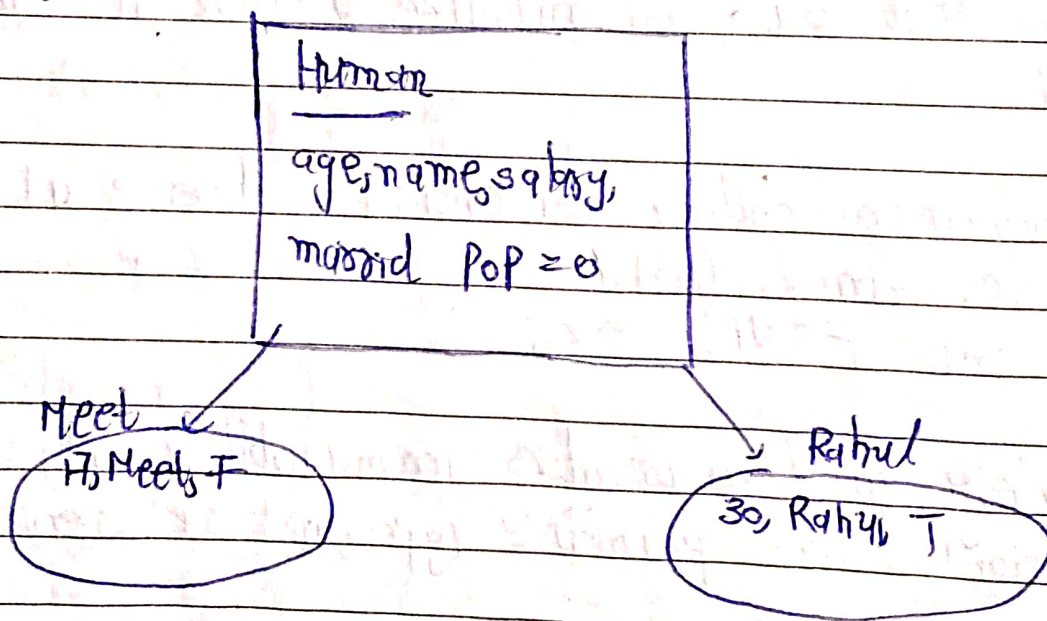 Human
age, name, salary,
marrid POP = 0
Meet
17, Meet, F
Rahul
30, Rahul, T